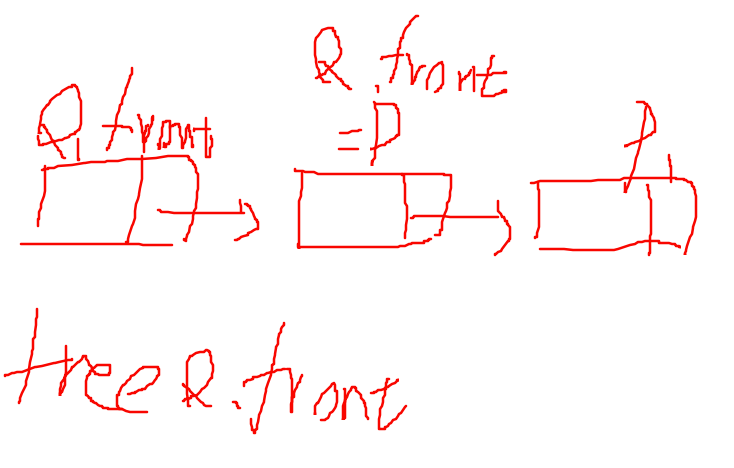 Q.front
Q.front
=P
P
free Q.front